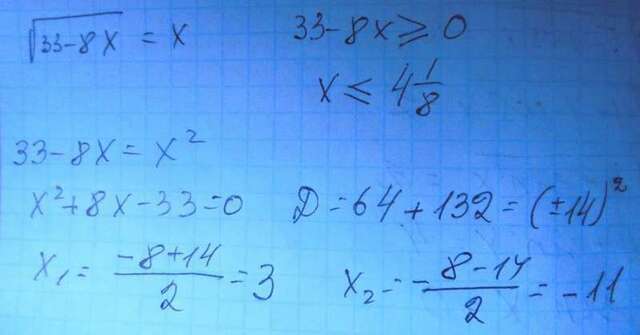 √(33-8x) = x
33-8x ≥ 0
x ≤ 4 1/8
33-8x = x²
x²+8x-33=0
D = 64 + 132 = (±14)²
x₁ = (-8+14)/2 = 3
x₂ = -(8-14)/2 = -11